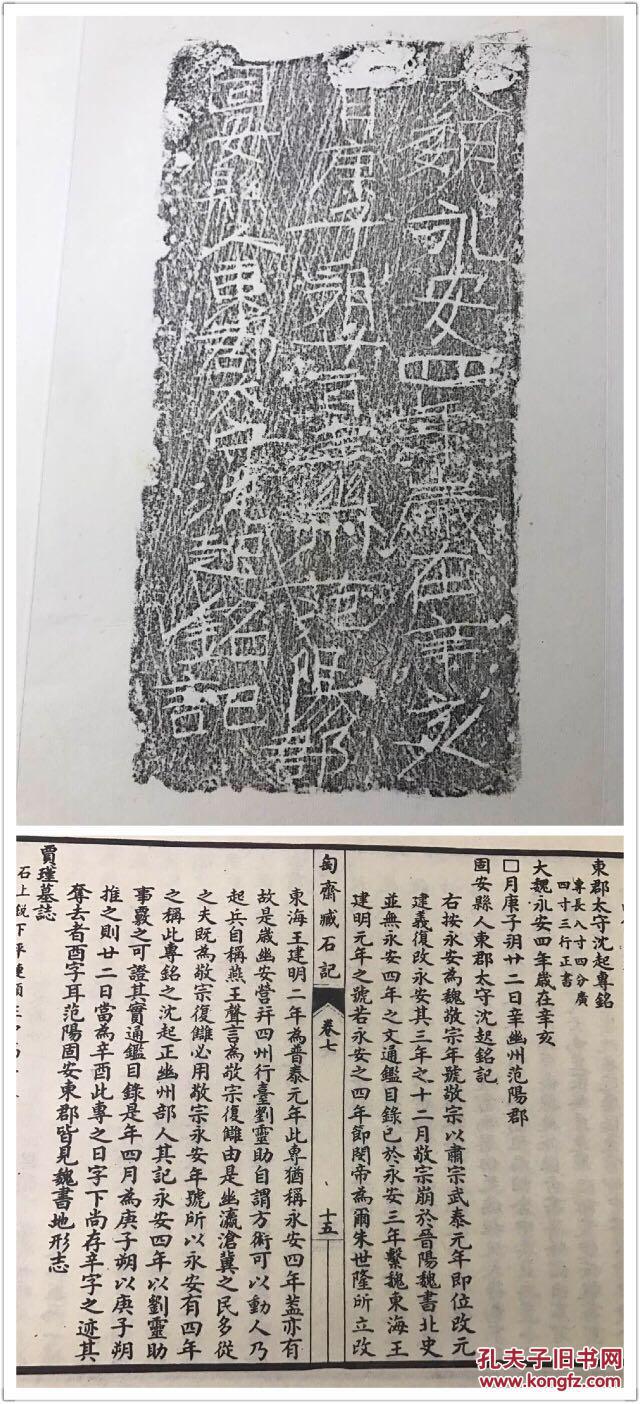 大魏永安四年歲在辛亥
月庚子朔廿二日辛幽州范陽郡
固安縣人東郡太守沈起銘記
東郡太守沈起專銘
專長八寸四分廣
四寸三行正書
大魏永安四年歲在辛亥
□月庚子朔廿二日辛幽州范陽郡
固安縣人東郡太守沈起銘記
右按永安為魏敬宗年號敬宗以肅宗武泰元年即位改元
建義復改永安其三年之十二月敬宗崩於晉陽魏書北史
並無永安四年之文通鑑目錄已於永安三年繫魏東海王
建明元年之號若永安之四年節閔帝為爾朱世隆所立改
匋齋臧石記
卷七
十五
東海王建明二年為普泰元年此專猶稱永安四年葢亦有
故是歲幽安營并四州行臺劉靈助自謂方術可以動人乃
起兵自稱燕王聲言為敬宗復讎由是幽瀛滄冀之民多從
之夫既為敬宗復讎必用敬宗永安年號所以永安有四年
之稱此專銘之沈起正幽州部人其記永安四年以劉靈助
事覈之可證其實通鑑目錄是年四月為庚子朔以庚子朔
推之則廿二日當為辛酉此專之日字下尚存辛字之迹其
奪去者酉字耳范陽固安東郡皆見魏書地形志
賈瑾墓誌
孔夫子旧书网
www.kongfz.com